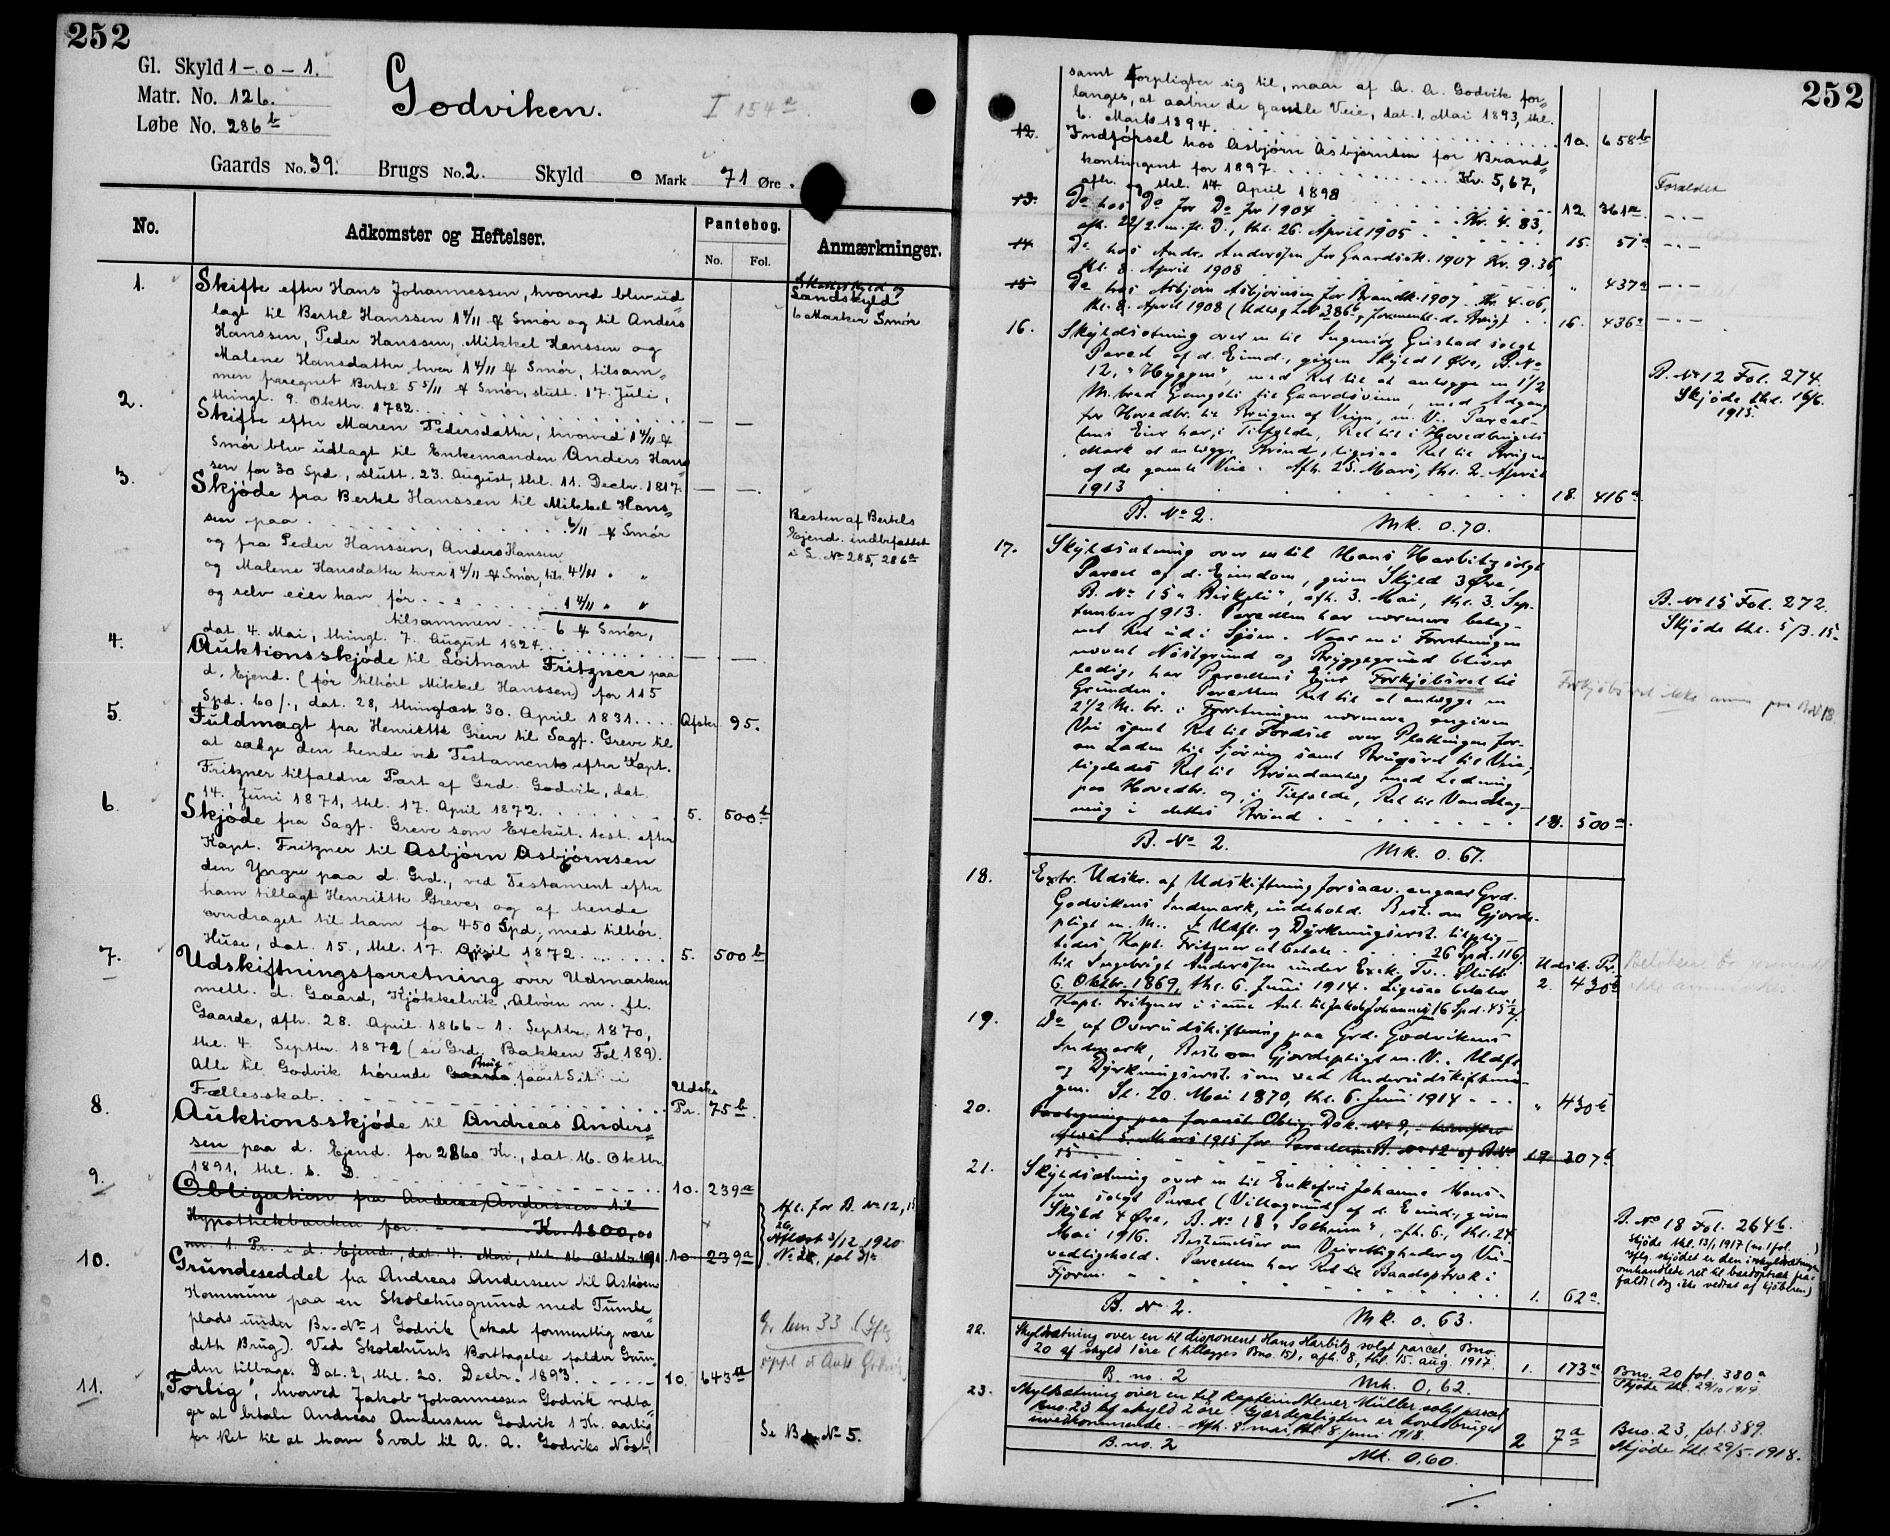 252
Gl. Skyld 1 - 0 - 1.
Matr. No. 126.
Løbe No. 286 b
Godviken.
I 154 a
Gaards No. 39. Brugs No. 2. Skyld 0 Mark 71 Øre.
No.
Adkomster og Heftelser.
Pantebog.
No. Fol.
Anmærkninger.
1. Skifte efter Hans Johannessen, hvorved blev ud
lagt til Bertel Hanssen 1 4/11 ℔ Smør og til Anders
Hanssen, Peder Hanssen, Mikkel Hanssen og
Malene Hansdatter hver 1 4/11 ℔ Smør, tilsam„
men paregnet Bertel 5 5/11 ℔ Smør, slutt. 17. Juli,
thingl. 9. Oktbr. 1782. — —
Landskyld
6 Marker Smør
2. Skifte efter Maren Pedersdatter, hvorved 1 4/11 ℔
Smør blev udlagt til Enkemanden Anders Hans
sen for 30 Spd, slutt. 23. August, thl. 11. Decbr. 1817. — —
3. Skjøde fra Bertel Hanssen til Mikkel Hans„
sen paa . . . 6/11 ℔ Smør
og fra Peder Hanssen, Anders Hansen
og Malene Hansdatter hver 1 4/11 ℔ Smør, tils. 4 1/11 " "
og selv eier han før . . . 1 4/11 " "
tilsammen . . . 6 ℔ Smør,
dat. 4. Mai, thingl. 7. August 1824. — —
Resten af Bertels
Ejend. indbefattet
i L. No 285, 286 a
4. Auktionsskjøde til Løitnant Fritzner paa
d. Ejend. (før tilhørt Mikkel Hanssen) for 115
Spd. 60 /., dat. 28, thinglæst 30. April 1831. . . . Afskr. 95.
5. Fuldmagt fra Henriette Greve til Sagf. Greve til
at sælge den hende ved Testament efter Kapt.
Fritzner tilfaldne Part af Grd. Godvik, dat.
14. Juni 1871, thl. 17. April 1872. 5. 500 b
6. Skjøde fra Sagf. Greve som Exekut. test. efter
Kapt. Fritzner til Asbjørn Asbjørnsen
den Yngre paa d. Grd., ved Testament efter
ham tillagt Henriette Greve, og af hende
overdraget til ham for 450 Spd, med tilhør.
Huse, dat. 15., thl. 17. April 1872. 5. 500 b
7. Udskiftningsforretning over Udmarken
mell. d. Gaard, Kjøkkelvik, Alvøen m. fl.
Gaarde, afh. 28. April 1866 - 1. Septbr. 1870,
thl. 4. Septbr. 1872 (se Grd. Bakken Fol 189).
Alle til Godvik hørende Gaarde Brug faaet Sit i
Fællesskab. Udsks Pr. 75 b
8. Auktionsskjøde til Andreas Anders„
sen paa d. Ejend. for 2860 Kr., dat. 16. Oktbr.
1891, thl. s. D. 10. 239 a
9. Obligation fra Andreas Anderssen til
Hypothekbanken for. Kr. 1800,00
m. 1. Pr. i d. Ejend., dat. 4. Mai, thl. 16. Oktbr. 1891. 10. 239 a
Afl. for B. No 12, 15
Aflæst 3/12 1920
10. Grundeseddel fra Andreas Anderssen til Askøens
Kommune paa en Skolehusgrund med Tumle
plads under Br. No 1 Godvik (skal formentlig være
dette Brug). Ved Skolehusets Borttagelse falder Grun„
den tilbage. Dat. 2, thl. 20. Decbr. 1893. 10. 643 a
11. „Forlig", hvorved Jakob Johannessen Godvik vedta„
ger at betale Andreas Anderssen Godvik 1 Kr. aarlig
for Ret til at have Sval til A. A. Godviks Nøst,
Se B No 5.
252
samt forpligter sig til, naar af A. A. Godvik for„
langes, at aabne de gamle Veie, dat. 1. Mai 1893, thl.
6. Marts 1894. 10. 658 b
12. Indførsel hos Asbjørn Asbjørnsen for Brand„
kontingent for 1897. Kr. 5,67,
afh. og thl. 14. April 1898 12. 361 a
Forældet
13. Do hos Do for Do for 1904 Kr. 4.83,
afh. 22/2 m. fl. D., thl. 26. April 1905 15. 51 a — . —
14. Do hos Andr. Anderssen for Gaardsk. 1907 Kr. 9.36
thl. 8. April 1908 " 437 a — . —
15. Do hos Asbjørn Asbjørnsen for Brandk. 1907 Kr. 4.06,
thl. 8. April 1908 16. 436 a — . —
16. Skyldsætning over en til Ingemός Gjerstad solgt
Parcel af d. Eiend., given Skyld 1 Øre, B. No
12, "Hyggen", med Ret til at anlægge en 1 1/2
M. bred Gangsti til Gaardsveien, med Adgang
for Hovedbr. til Brugen af Veien, m. V. Parcel-
lens Eier har, i Tilfælde, Ret til i Hovedbrugets
Mark at anlægge Brønd, ligesaa Ret til Brugen
af de gamle Veie. Afh. 25. Mars, thl. 2. April
1913 18. 416 a
B. No 12 Fol. 274.
Skjøde thl. 16/6.
1915.
B. No 2. Mk. 0.70.
17. Skyldsætning over en til Hans Harbitz solgt
Parcel af d. Eiendom, given Skyld 3 Øre,
B. No 15 "Birkeli", afh. 3. Mai, thl. 3. Sep-
tember 1913. Parcellen har nærmere beteg-
net Ret ud i Sjøen. Naar en i Forretningen
nævnt Nøstgrund og Bryggegrund bliver
ledig, har Parcellens Eier Forkjøbsret til
Grunden. Parcellen Ret til at anlægge en
2 1/2 M. br. i Forretningen nærmere angiven
Vei samt Ret til Færdsel over Pladsen for-
an Laden til Kjøring samt Brugsret til Veien,
ligeledes Ret til Brøndanlæg med Ledning
paa Hovedbr. og, i Tilfælde, Ret til Vandtag-
ning i dettes Brønd 18. 500 a
B. No 15 Fol. 272.
Skjøde thl. 5/3. 15.
Forkjøbsret ikke anm. paa B. No 18.
B. No 2. Mk. 0.67.
18. Extr. Udskr. af Udskiftningsforsav. angaar Grd.
Godvikens Indmark, indehold. Best. om Gjerde-
pligt m. M. I Udfl. og Dyrkningserst. tilplig-
tedes Kapt. Fritzner at betale 26 Spd. 116 /.
til Ingebrigt Anderssen under Exek. Tv. Slutt.
6. Oktbr. 1869, thl. 6. Juni 1914. Ligesaa betaler
Kapt. Fritzner i samme Anl. til Jakob Johannesen 16 Spd. 45 1/2 /.
Udsk. Pr.
2. 430 b
19. Do af Overudskiftning paa Grd. Godvikens
Indmark, Best. om Gjerdepligt m. V. Udfl.
og Dyrkningserst. som ved Underudskiftnin-
gen. Sl. 20. Mai 1870, thl. 6. Juni 1914 " 430 b
20. Paategning paa foranst. Oblig. Dok. No 9,
aflæst 5. Mars 1915 for Parcellerne B. No 12 og B. No
15 19 307 b
21. Skyldsætning over en til Enkefru Johanna Mons-
sen solgt Parcel (Villagrund) af d. Eiend., given
Skyld 4 Øre, B. No 18 "Solheim", afh. 6., thl. 24.
Mai 1916. Bestemmelser om Veirettigheder og Vei-
vedligehold. Parcellen har Ret til Baadoptræk i
Fjæren. 1. 62 a
B. No 18 Fol. 264 b.
Skjøde thl. 13/1 1917
iflg. skjødet er den i skyldsætningen
omhandlede ret til baadoptræk fra-
faldt (dog ikke vedtat af kjøberen)
B. No 2. Mk. 0.63.
22. Skyldsætning over en til disponent Hans Harbitz solgt parcel, Bno.
20 af skyld 1 øre (tillægges Bno. 15), afh. 8, thl. 15. aug. 1917. 1. 173 a
Bno. 20 fol. 380 a
Skjøde thl. 29/10 1917
B. no. 2 Mk. 0,62.
23. Skyldsætning over en til kaptein Stener Müller solgt parcel
Bno. 23 af skyld 2 øre. Gjærdepligten er hovedbruget
uvedkommende. - Afh. 8. mai, thl. 8. juni 1918. 2 7 a
Bno. 23, fol. 389.
Skjøde thl. 29/5. 1918.
B. no. 2 Mk. 0,60.